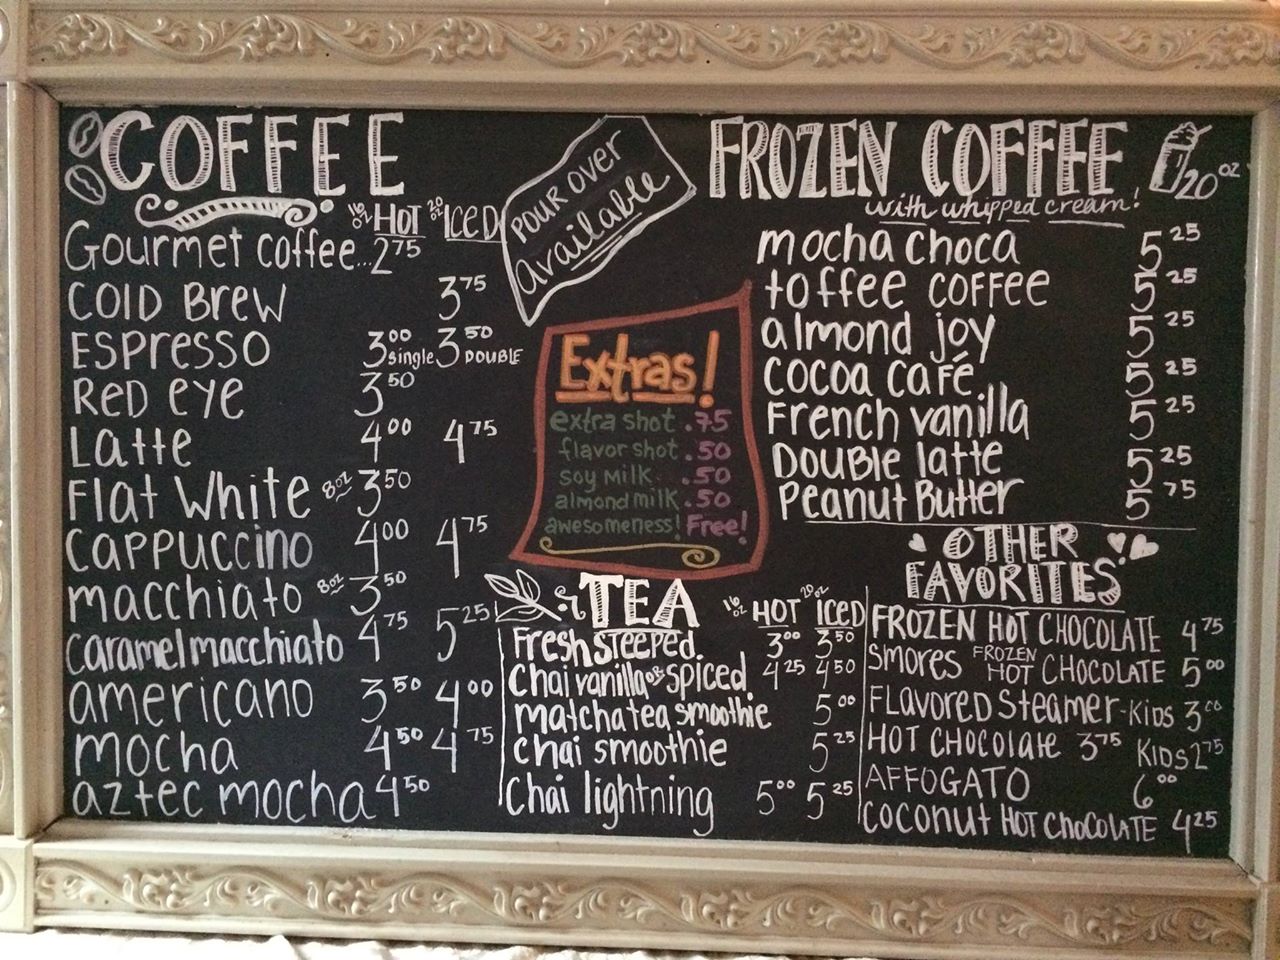 COFFEE
16 oz HOT 20 oz ICED
Gourmet coffee... 2 75
COLD BREW 3 75
ESPRESSO 3 00 single 3 50 DOUBLE
RED EYE 3 50
Latte 4 00 4 75
Flat White 8oz 3 50
CAPPUCCINO 4 00 4 75
macchiato 8oz 3 50
caramel macchiato 4 75 5 25
americano 3 50 4 00
mocha 4 50 4 75
aztec mocha 4 50
POUR OVER
available
Extras!
extra shot .75
flavor shot .50
soy milk .50
almond milk .50
awesomeness! Free!
TEA
16 oz HOT 20 oz ICED
Fresh Steeped 3 00 3 50
Chai vanilla or spiced 4 25 4 50
matcha tea smoothie 5 00
chai smoothie 5 25
Chai lightning 5 00 5 25
FROZEN COFFEE 20 oz
with whipped cream!
mocha choca 5 25
toffee coffee 5 25
almond joy 5 25
cocoa café 5 25
French vanilla 5 25
Double latte 5 25
Peanut Butter 5 75
OTHER
FAVORITES
FROZEN HOT CHOCOLATE 4 75
SMORES FROZEN HOT CHOCOLATE 5 00
FLAVORED STEAMER-KIDS 3 00
HOT CHOCOLATE 3 75 KIDS 2 75
AFFOGATO 6 00
COCONUT HOT CHOCOLATE 4 25